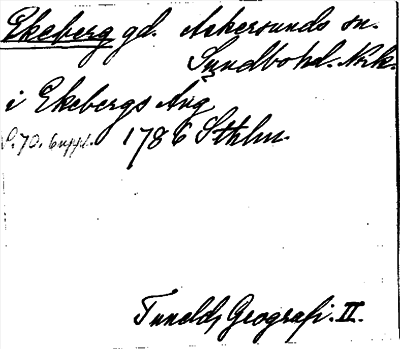 Ekeberg gd. Askersunds sn.
Sundbohd. Nrk.
i Ekebergs Äng
S. 70. 6 uppl. 1786 Sthlm.
Tunelds Geografi. II.